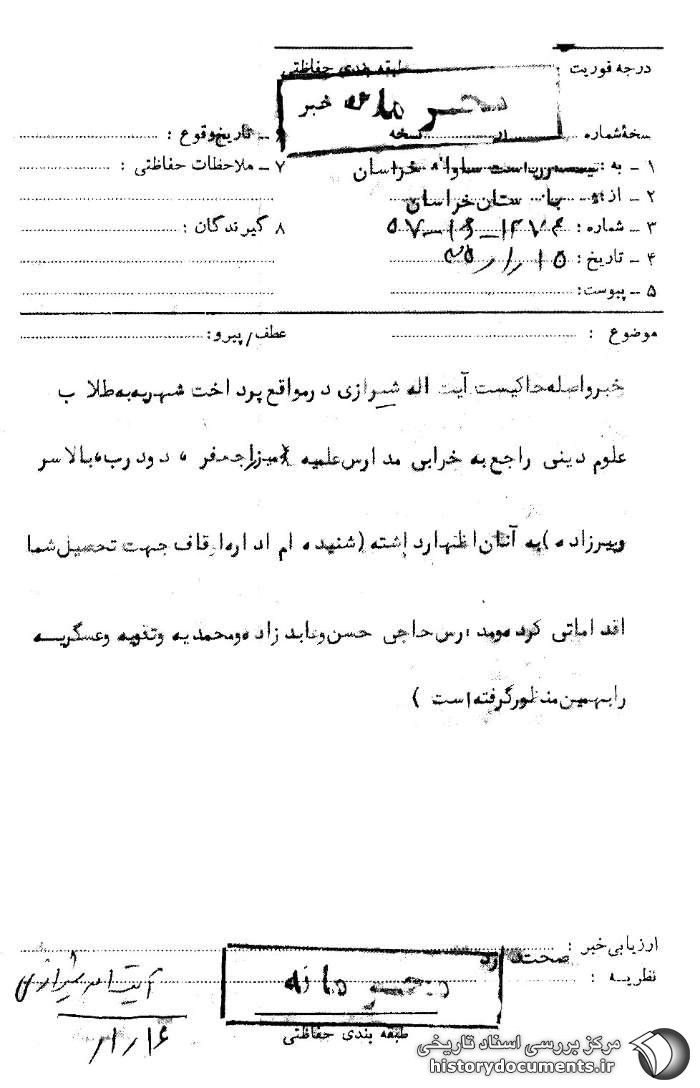 درجه فوریت
طبقه بندی حفاظتی
خبر
محرمانه
نسخهٔ شماره از نسخه
۶ ـ تاریخ وقوع :
۱ ـ به : ریاست ساواک خراسان
۷ ـ ملاحظات حفاظتی :
۲ ـ از : استان خراسان
۳ ـ شماره :
۸ گیرندگان :
۴ ـ تاریخ :
۵ ـ پیوست:
موضوع :
عطف/پیرو:
خبر واصله حاکیست آیت اله شیرازی درمواقع پرداخت شهریه به طلاب
علوم دینی راجع به خرابی مدارس علمیه (میرزاجعفر ، دودرب ، بالاسر
وپیرزاده )به آنان اظهارداشته (شنیده ام اداره اوقاف جهت تحصیل شما
اقداماتی کرده ومدارس حاجی حسن وعابدزاده ومحمدیه ونقویه وعسگریه
رابهمین منظورگرفته است )
ارزیابی خبر : صحت دارد
نظریه :
محرمانه
طبقه بندی حفاظتی
آیت اله شیرازی
مرکز بررسی اسناد تاریخی
historydocuments.ir